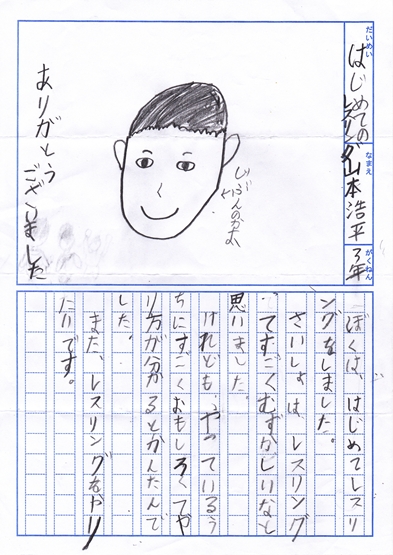 だいめい
はじめての
レスリング
なまえ
山本浩平
がくねん
3年
じぶんのかお
ありがとう
ございました
ぼくは、はじめてレスリ
ングをしました。
さいしょはレスリング
てすごくむずかしいなと
思いました。
けれども、やっているう
ちにすごくおもしろくてや
り方が分かるとかんたんで
した。
また、レスリングをやり
たいです。